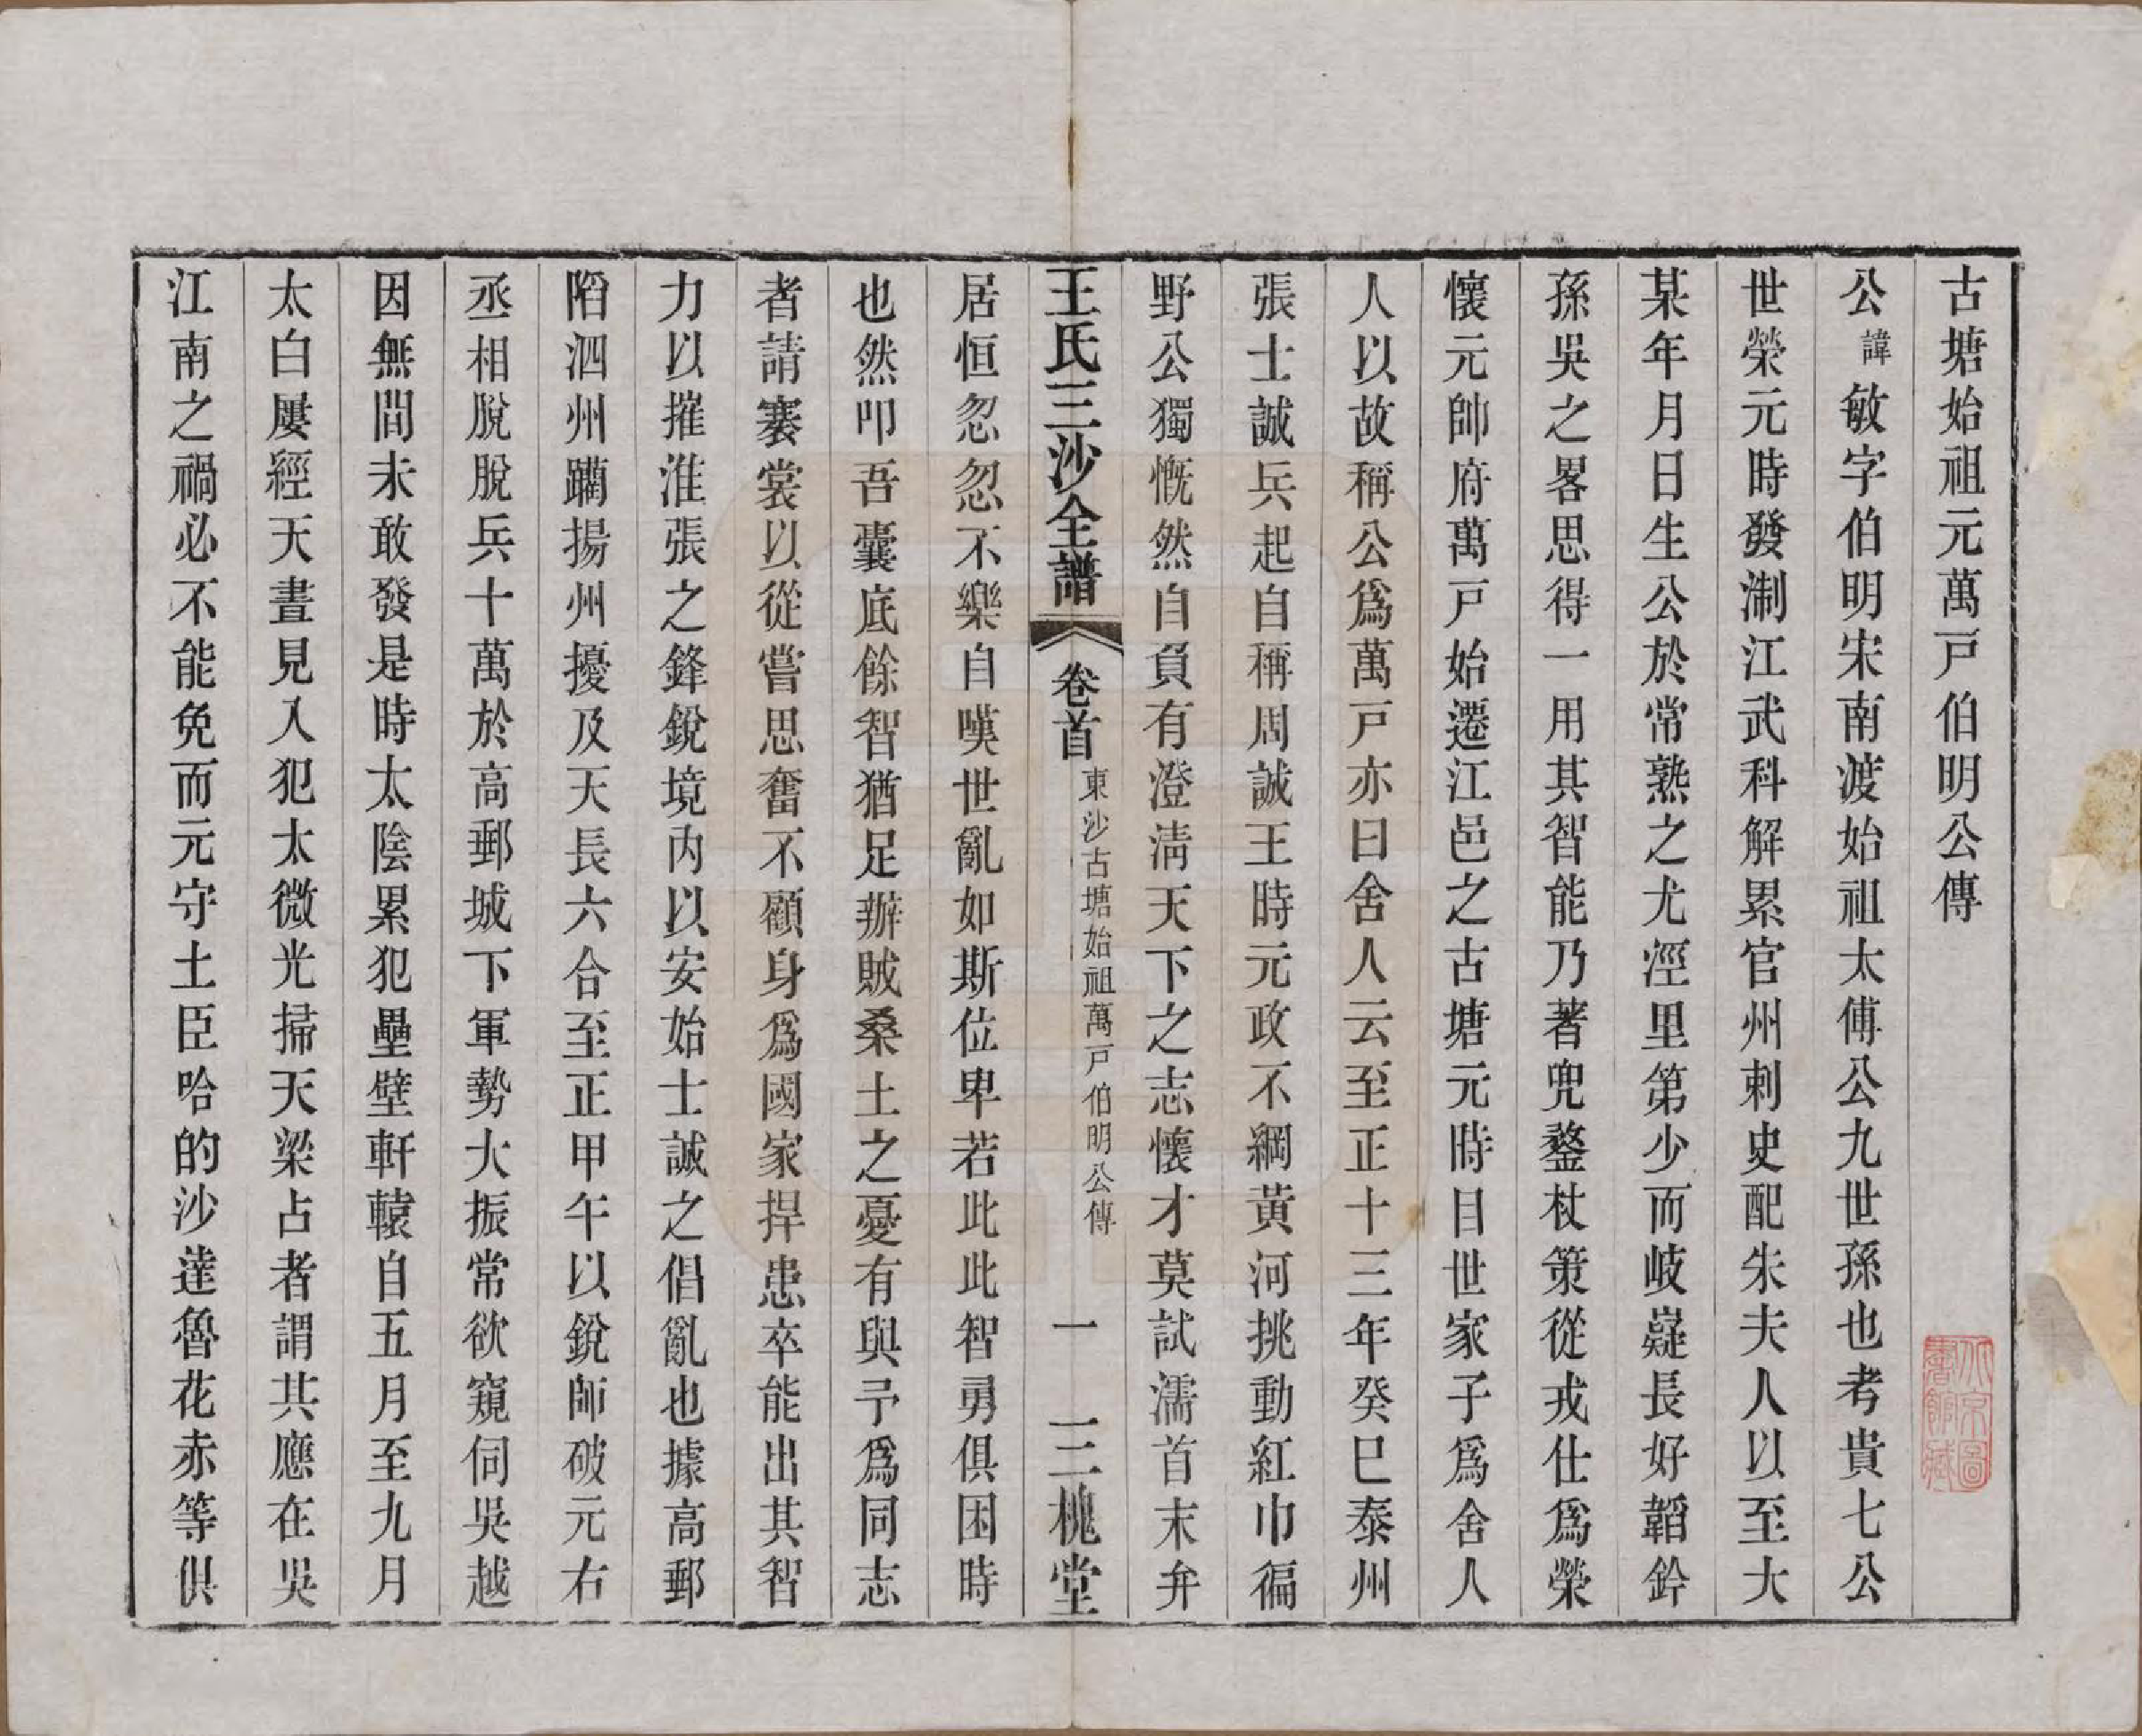 古塘始祖元萬戸伯明公傳
公諱敏字伯明宋南渡始祖太傅公九世孫也考貴七公
世榮元時發淛江武科解累官州刺史配朱夫人以至大
某年月日生公於常熟之尤涇里第少而岐嶷長好韜鈐
孫吳之畧思得一用其智能乃著兜鍪杖策從戎仕爲榮
懷元帥府萬戸始遷江邑之古塘元時目世家子爲舍人
人以故稱公爲萬戸亦曰舍人云至正十三年癸巳泰州
張士誠兵起自稱周誠王時元政不綱黃河挑動紅巾徧
野公獨慨然自負有澄淸天下之志懷才莫試濡首末弁
王氏三沙全譜 卷首 東沙古塘始祖萬戸伯明公傳 一 三槐堂
居恒忽忽不樂自嘆世亂如斯位卑若此此智勇俱困時
也然叩吾囊底餘智猶足辦賊桑土之憂有與予爲同志
者請褰裳以從嘗思奮不顧身爲國家捍患卒能出其智
力以摧淮張之鋒銳境內以安始士誠之倡亂也據高郵
陷泗州躪揚州擾及天長六合至正甲午以銳師破元右
丞相脫脫兵十萬於高郵城下軍勢大振常欲窺伺吳越
因無間未敢發是時太陰累犯壘壁軒轅自五月至九月
太白屢經天晝見入犯太微光掃天梁占者謂其應在吳
江南之禍必不能免而元守土臣哈的沙達魯花赤等俱